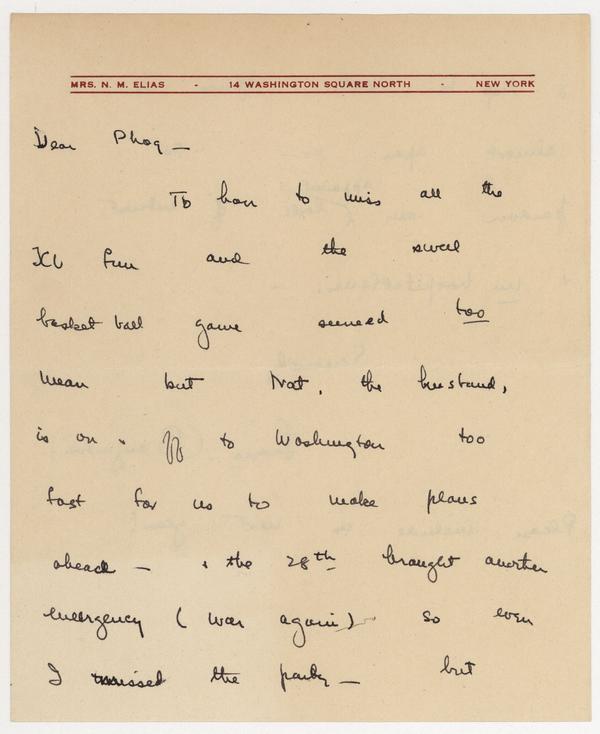 MRS. N. M. ELIAS - 14 WASHINGTON SQUARE NORTH - NEW YORK
Dear Phog —
To have to miss all the
KU fun and the swell
basket ball game seemed too
mean but Nat, the husband,
is on & off to Washington too
fast for us to make plans
ahead — & the 28th brought another
emergency (war again) — so even
I missed the party — but